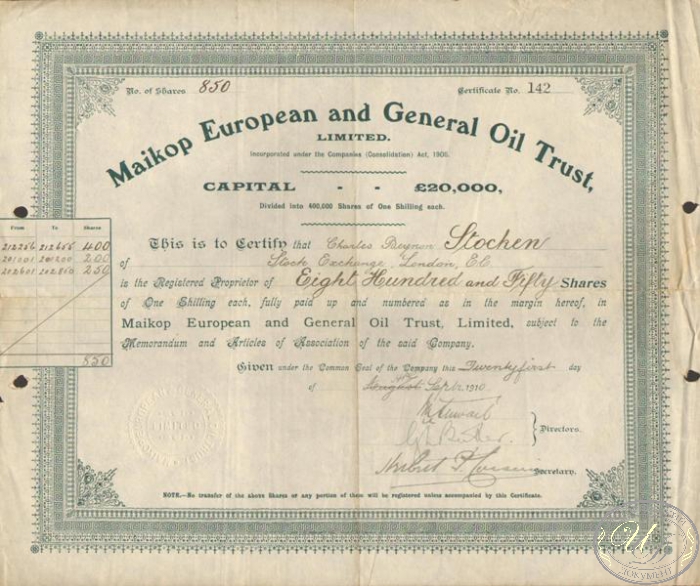 No. of Shares 850 Certificate No. 142
Maikop European and General Oil Trust,
LIMITED.
Incorporated under the Companies (Consolidation) Act, 1908.
CAPITAL - - £20,000,
Divided into 400,000 Shares of One Shilling each.
From To Shares
212256 212655 400
201001 201200 200
202601 202850 250
850
This is to Certify that Charles Beynon Stocken
of Stock Exchange, London, E.C.
is the Registered Proprietor of Eight Hundred and Fifty Shares
of One Shilling each, fully paid up and numbered as in the margin hereof, in
Maikop European and General Oil Trust, Limited, subject to the
Memorandum and Articles of Association of the said Company.
Given under the Common Seal of the Company this Twenty first day
of August Septr 1910
Directors.
Secretary.
NOTE.—No transfer of the above Shares or any portion of them will be registered unless accompanied by this Certificate.
ДОКУМЕНТ